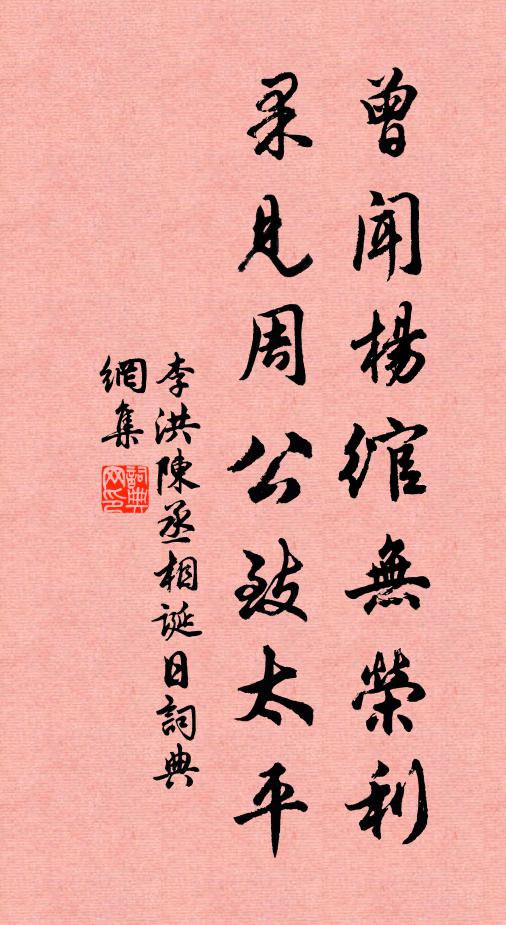 曾聞楊綰無榮利
果見周公致太平
李洪陳丞相誕日詞典
網集
詞典網印